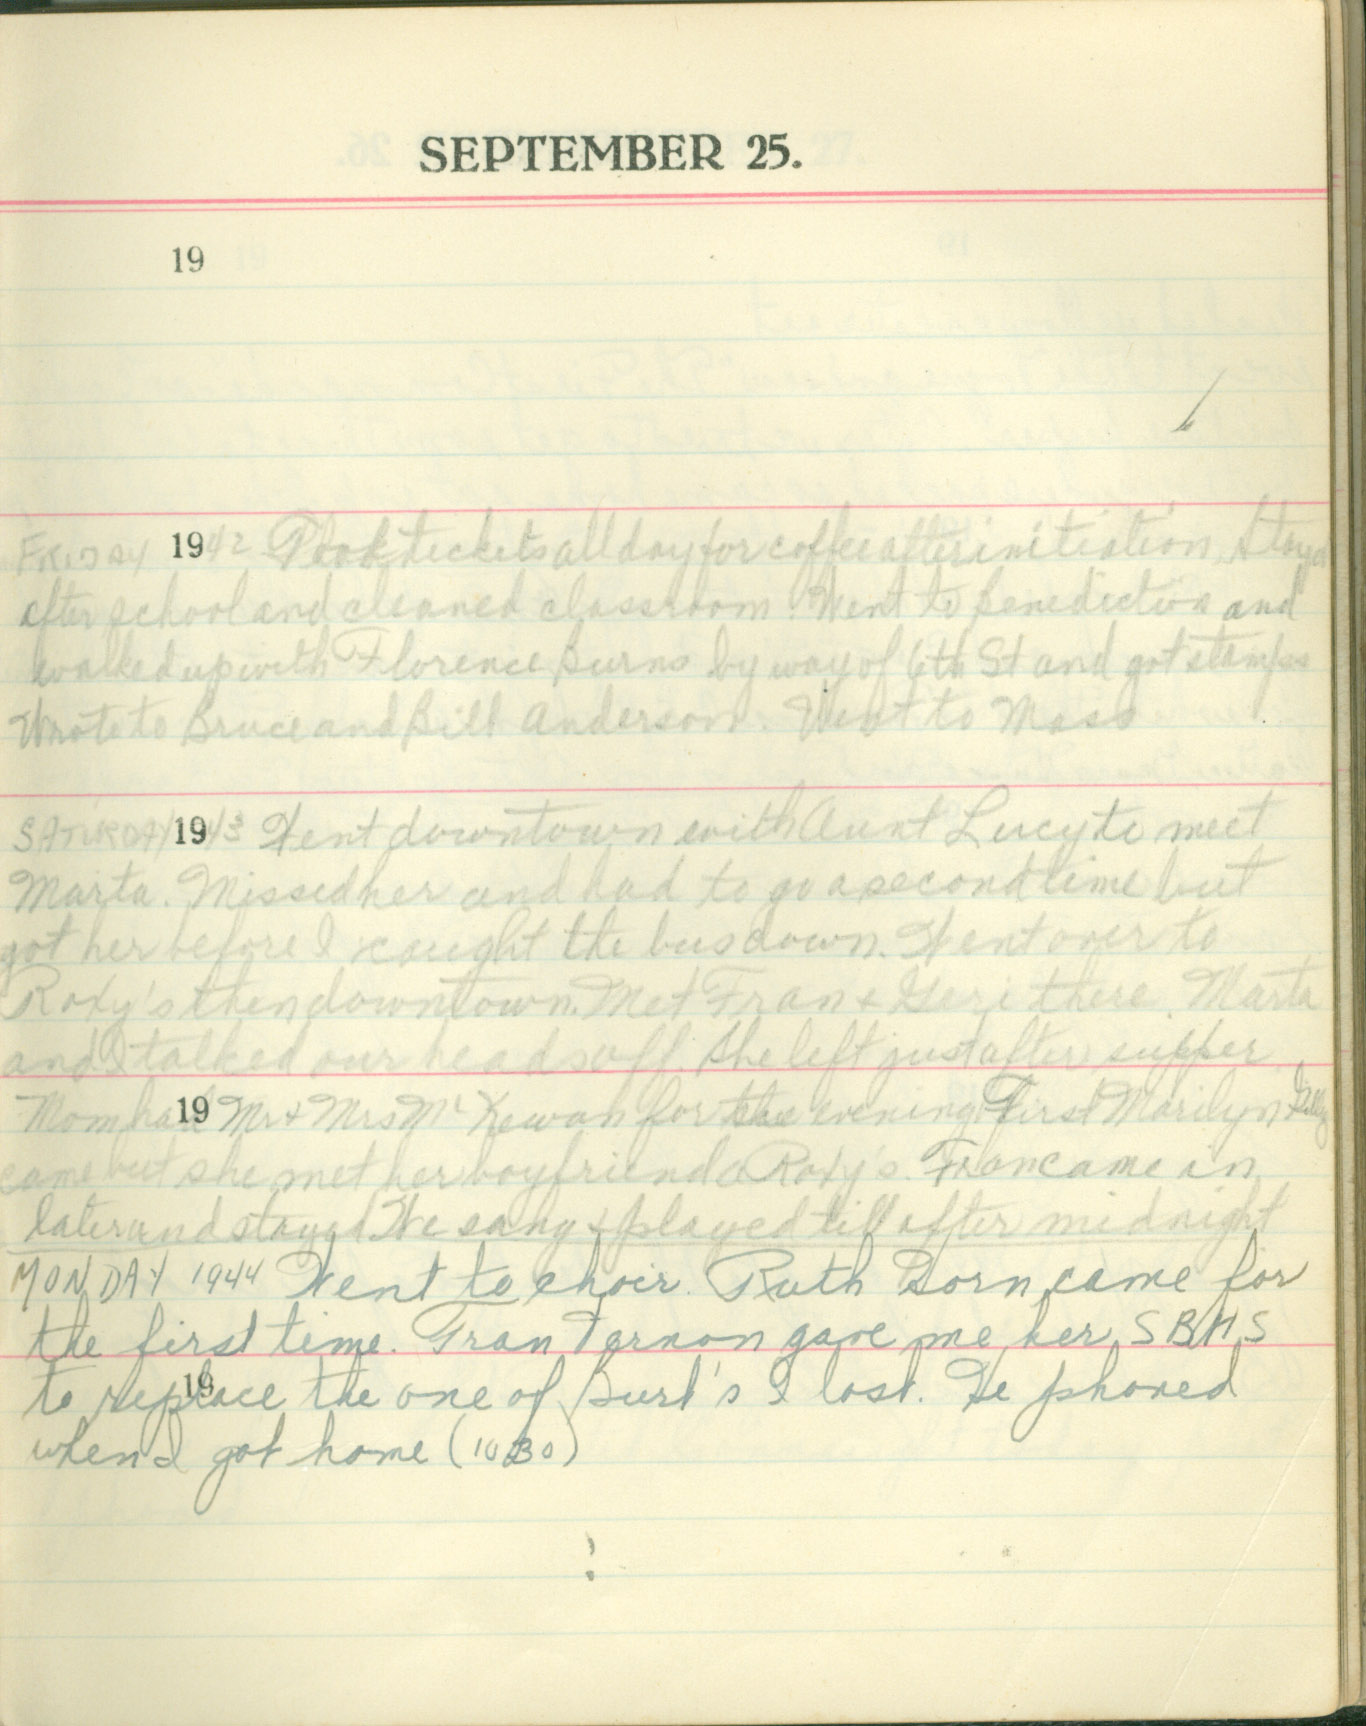 SEPTEMBER 25.
19
FRIDAY 1942 Took tickets all day for coffee after initiation. Stayed
after school and cleaned classroom. Went to Benediction and
walked up with Florence Burns by way of 6th St and got stamps
Wrote to Bruce and Bill Anderson. Went to Mass
SATURDAY 1943 Went downtown with Aunt Lucy to meet
Marta. Missed her and had to go a second time but
got her before I caught the bus down. Went over to
Roxy's then downtown. Met Fran & Geri there. Marta
and I talked our heads off. She left just after supper
19 Mom had Mr & Mrs Mc Kewan for the evening. First Marilyn
came but she met her boyfriend @ Roxy's. Fran came in
later and stayed. We sang & played till after midnight
MONDAY 1944 Went to choir. Ruth Born came for
the first time. Fran Vernon gave me her SBHS
19
to replace the one of Burt's I lost. He phoned
when I got home (1030)